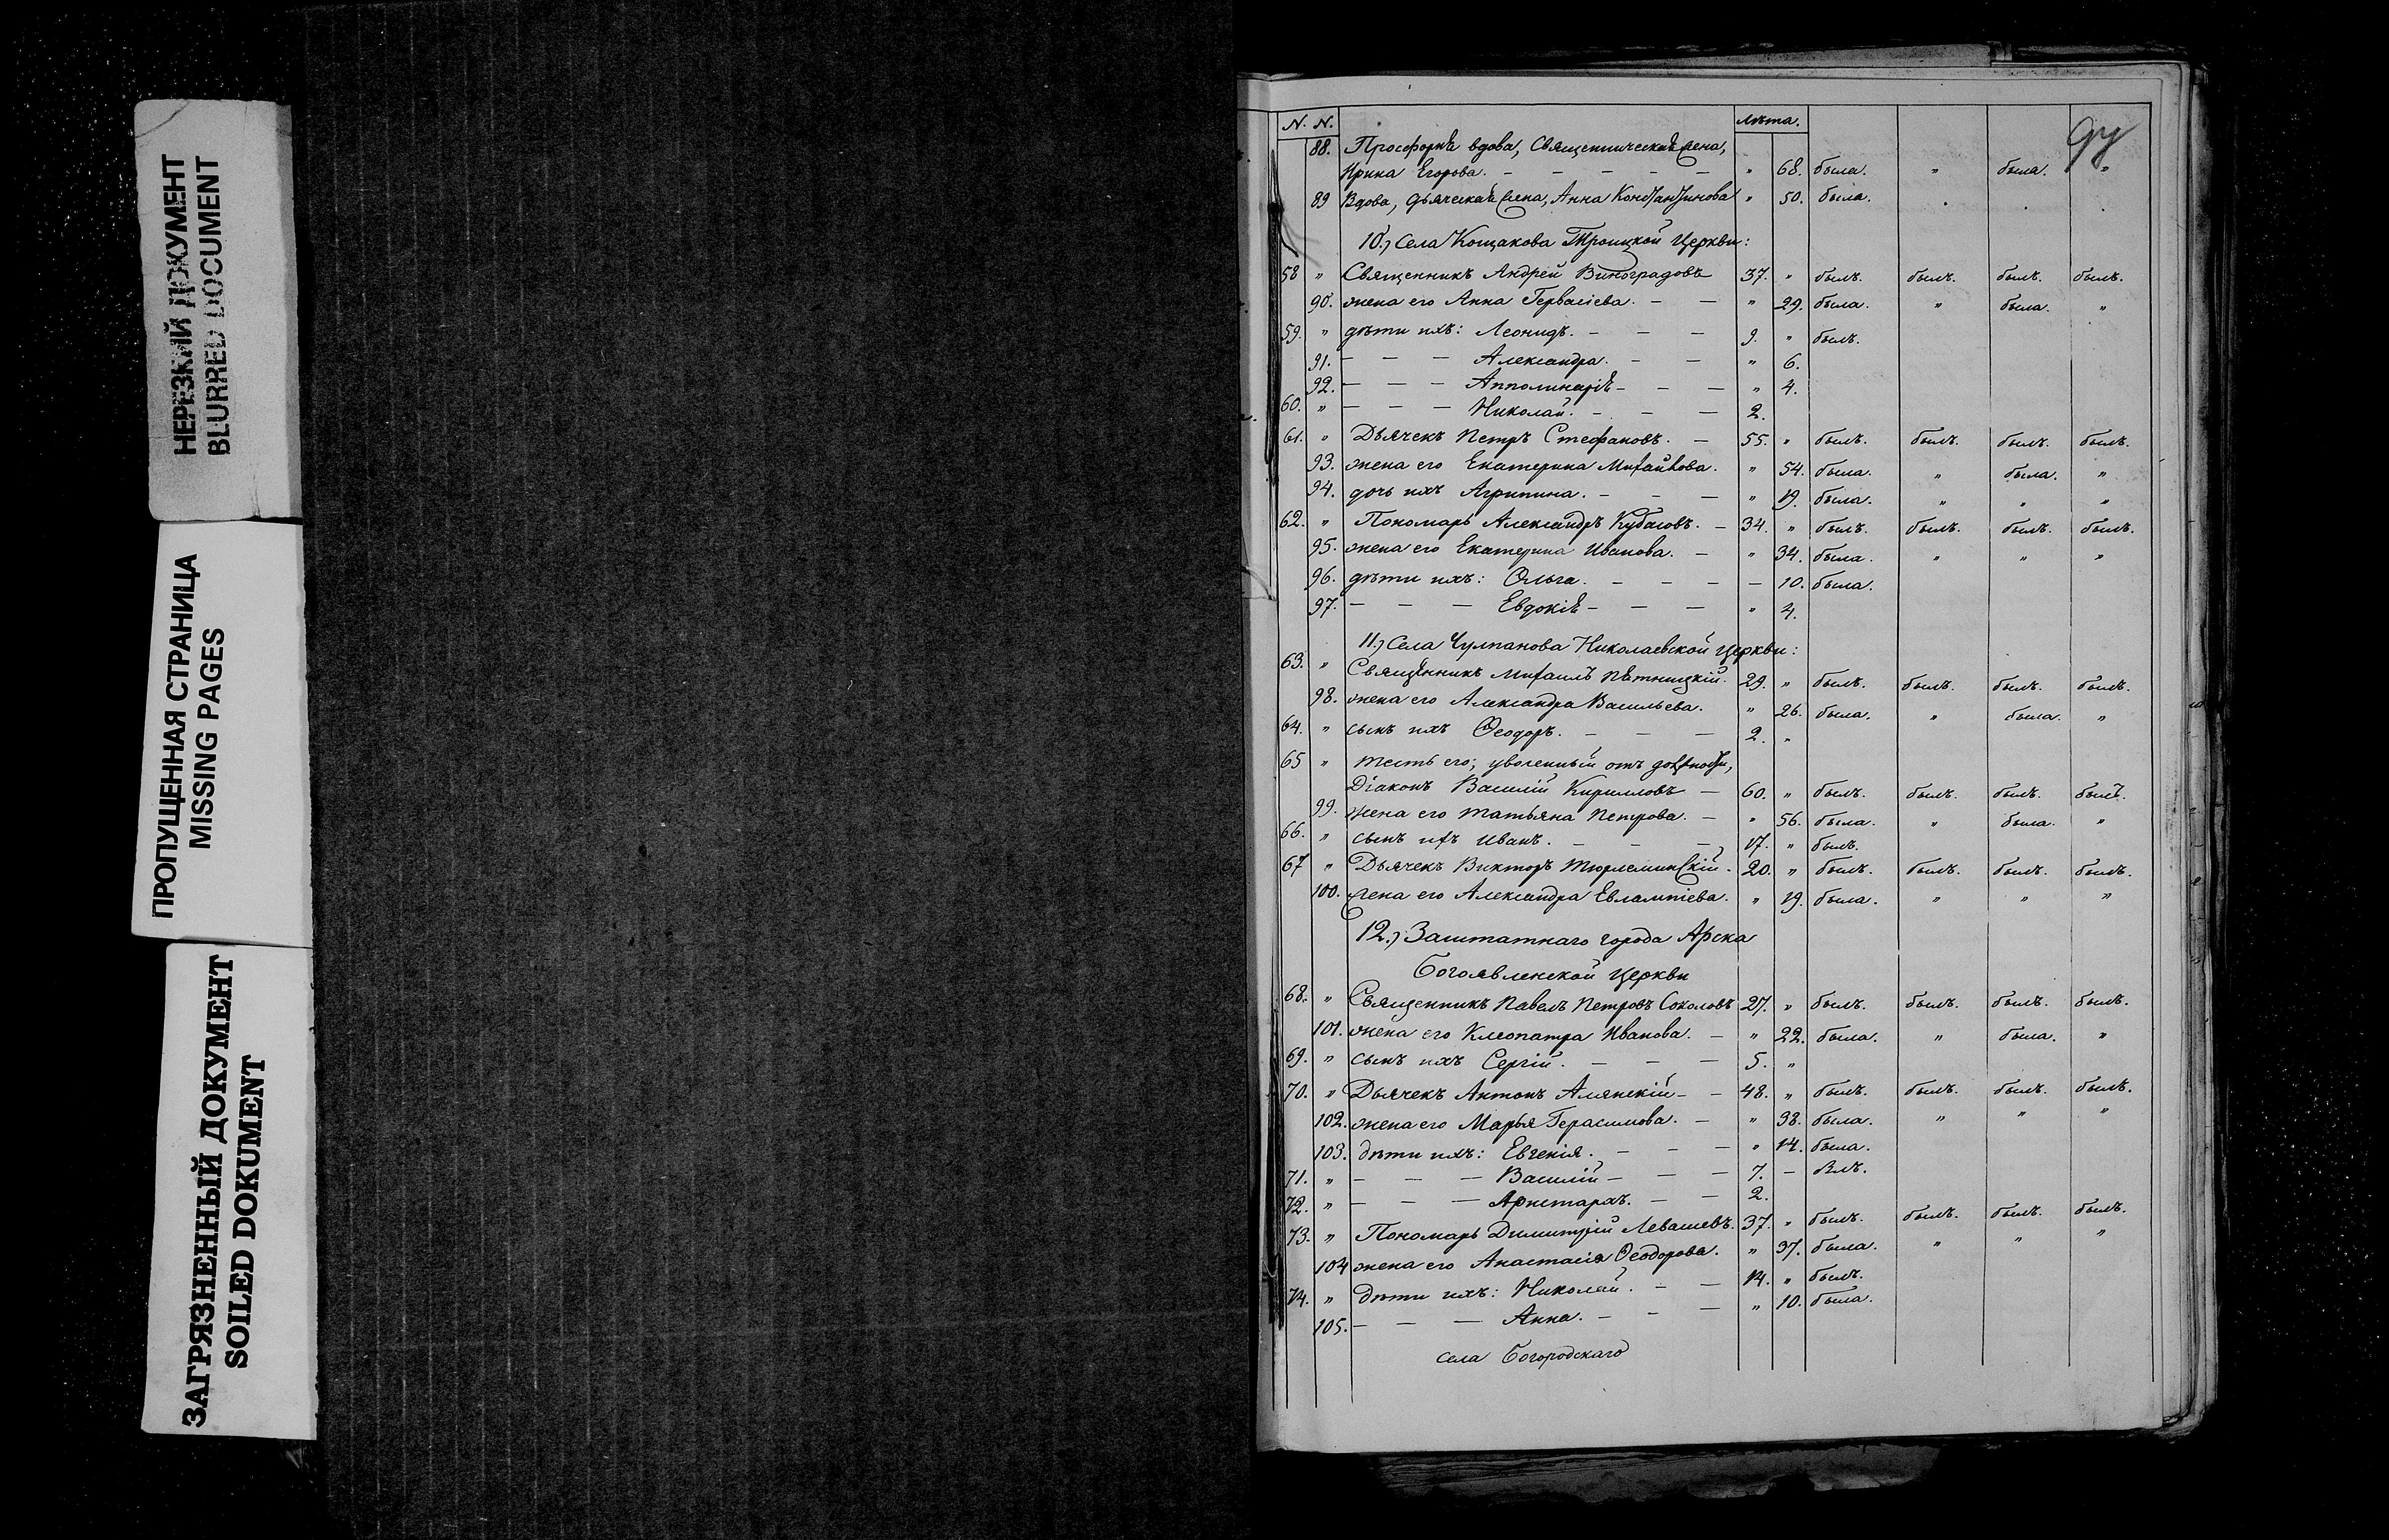 НЕРЕЗКИЙ ДОКУМЕНТ
BLURRED DOCUMENT
ПРОПУЩЕННАЯ СТРАНИЦА
MISSING PAGES
ЗАГРЯЗНЕННЫЙ ДОКУМЕНТ
SOILED DOKUMENT
N. N. Лѣта.
88. Просфорня вдова, Священническая жена,
Ирина Егорова. — — — — — " 68. была. " была. "
89 Вдова, дьяческая жена, Анна Константинова " 50. была.
10.) Села Кощакова Троицкой Церкви:
58 " Священникъ Андрей Виноградовъ 37. " былъ. былъ. былъ. былъ.
90. жена его Анна Гервасіева. — — " 29. была. " была. "
59. " дѣти ихъ: Леонидъ. — — — 9. " былъ.
91. — — — Александра. — — " 6.
92. — — — Апполинарія — — — " 4.
60. " — — — Николай. — — — 2.
61. " Дьячекъ Петръ Стефановъ. — 55. " былъ. былъ. былъ. былъ.
93. жена его Екатерина Михайлова. " 54. была. " была. "
94. дочь ихъ Агрипина. — — — " 19. была. " " "
62. " Пономарь Александръ Кубасовъ. — 34. " былъ. былъ. былъ. былъ.
95. жена его Екатерина Иванова. — " 34. была. " " "
96. дѣти ихъ: Ольга. — — — — 10. была.
97. — — — Евдокія — — — " 4.
11.) Села Чулпанова Николаевской Церкви:
63. " Священникъ Михаилъ Пятницкій. 29. " былъ. былъ. былъ. былъ.
98. жена его Александра Васильева. " 26. была. " была. "
64. " сынъ ихъ Ѳеодоръ. — — — 2. "
65 " тесть его, уволенный отъ должности,
Діаконъ Василій Кирилловъ — 60. " былъ. былъ. былъ. былъ.
99. жена его Татьяна Петрова. — " 56. была. " была. "
66. " сынъ ихъ Иванъ. — — — 17. " былъ.
67 " Дьячекъ Викторъ Тюрлеминскій. 20. " былъ. былъ. былъ. былъ.
100. жена его Александра Евлампіева. " 19. была. " " "
12.) Заштатнаго города Арска
Богоявленской Церкви
68. " Священникъ Павелъ Петровъ Соколовъ 27. " былъ. былъ. былъ. былъ.
101. жена его Клеопатра Иванова. — " 22. была. " была. "
69. " сынъ ихъ Сергій. — — — 5. "
70. " Дьячекъ Антонъ Алянскій — — 48. " былъ. былъ. былъ. былъ.
102. жена его Марья Герасимова. — " 38. была. " " "
103. дѣти ихъ: Евгенія. — — — " 14. была.
71. " — — — Василій — — — 7. —
72. " — — — Аристархъ. — — 2.
73. " Пономарь Димитрій Левашевъ. 37. " былъ. былъ. былъ. былъ.
104 жена его Анастасія Ѳеодорова. " 37. была. " " "
74. " дѣти ихъ: Николай. — — 14. " былъ.
105. — — — Анна. — — " 10. была.
села Богородскаго